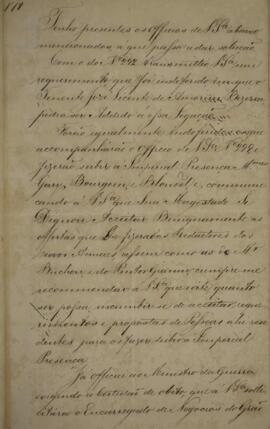 Tenho presentes os Officios de V. Sª. abaixo
mencionados a que passo a dar solução
Com o de Nº 222 transmittio V. Sª. um
requerimento que foi indeferido em que o
Tenente José Vicente de Amorim Bezerra
pedira ser Addido a essa Legação.
Serão igualmente indeferidos os que
acompanharão o Officio de V. Sª. Nº 229
fizerão subir á Imperial Presença
Gary, Bourgeu e Blondel e, commun
cando á V. Sª. que Sua Magestade Se
Dignou Acceitar Benignamente as
offertas que Lhe fizerão os Redactores dos
Annaes assim como as do Mr
Buchon e do Pintor cumpre me
recommendar á V. Sª. que evite quanto
ser possa incumbir-se de acceitar reque
rimentos e propostas de Pessoas ahi resi
dentes para os fazer subir á Imperial
Presença
Já officiei ao Ministro da Guerra
exigindo a Certidão de obito, que á V. Sª. solli
citára o Encarregado de Negocios do Grão